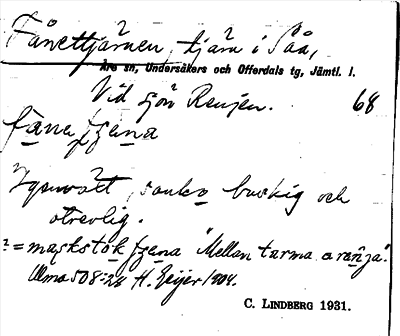 Fånettjärnen, tjärn i Såå,
Åre sn, Undersåkers och Offerdals tg, Jämtl. l.
Vid sjön Rensjen. 68
fa̱ne ʃʒæna
, sanka buskig och
otrevlig.
? = maskstok ʃʒæna "Mellan tarma o ranja".
Ulma 508:28 H. Geijer 1904.
C. LINDBERG 1931.